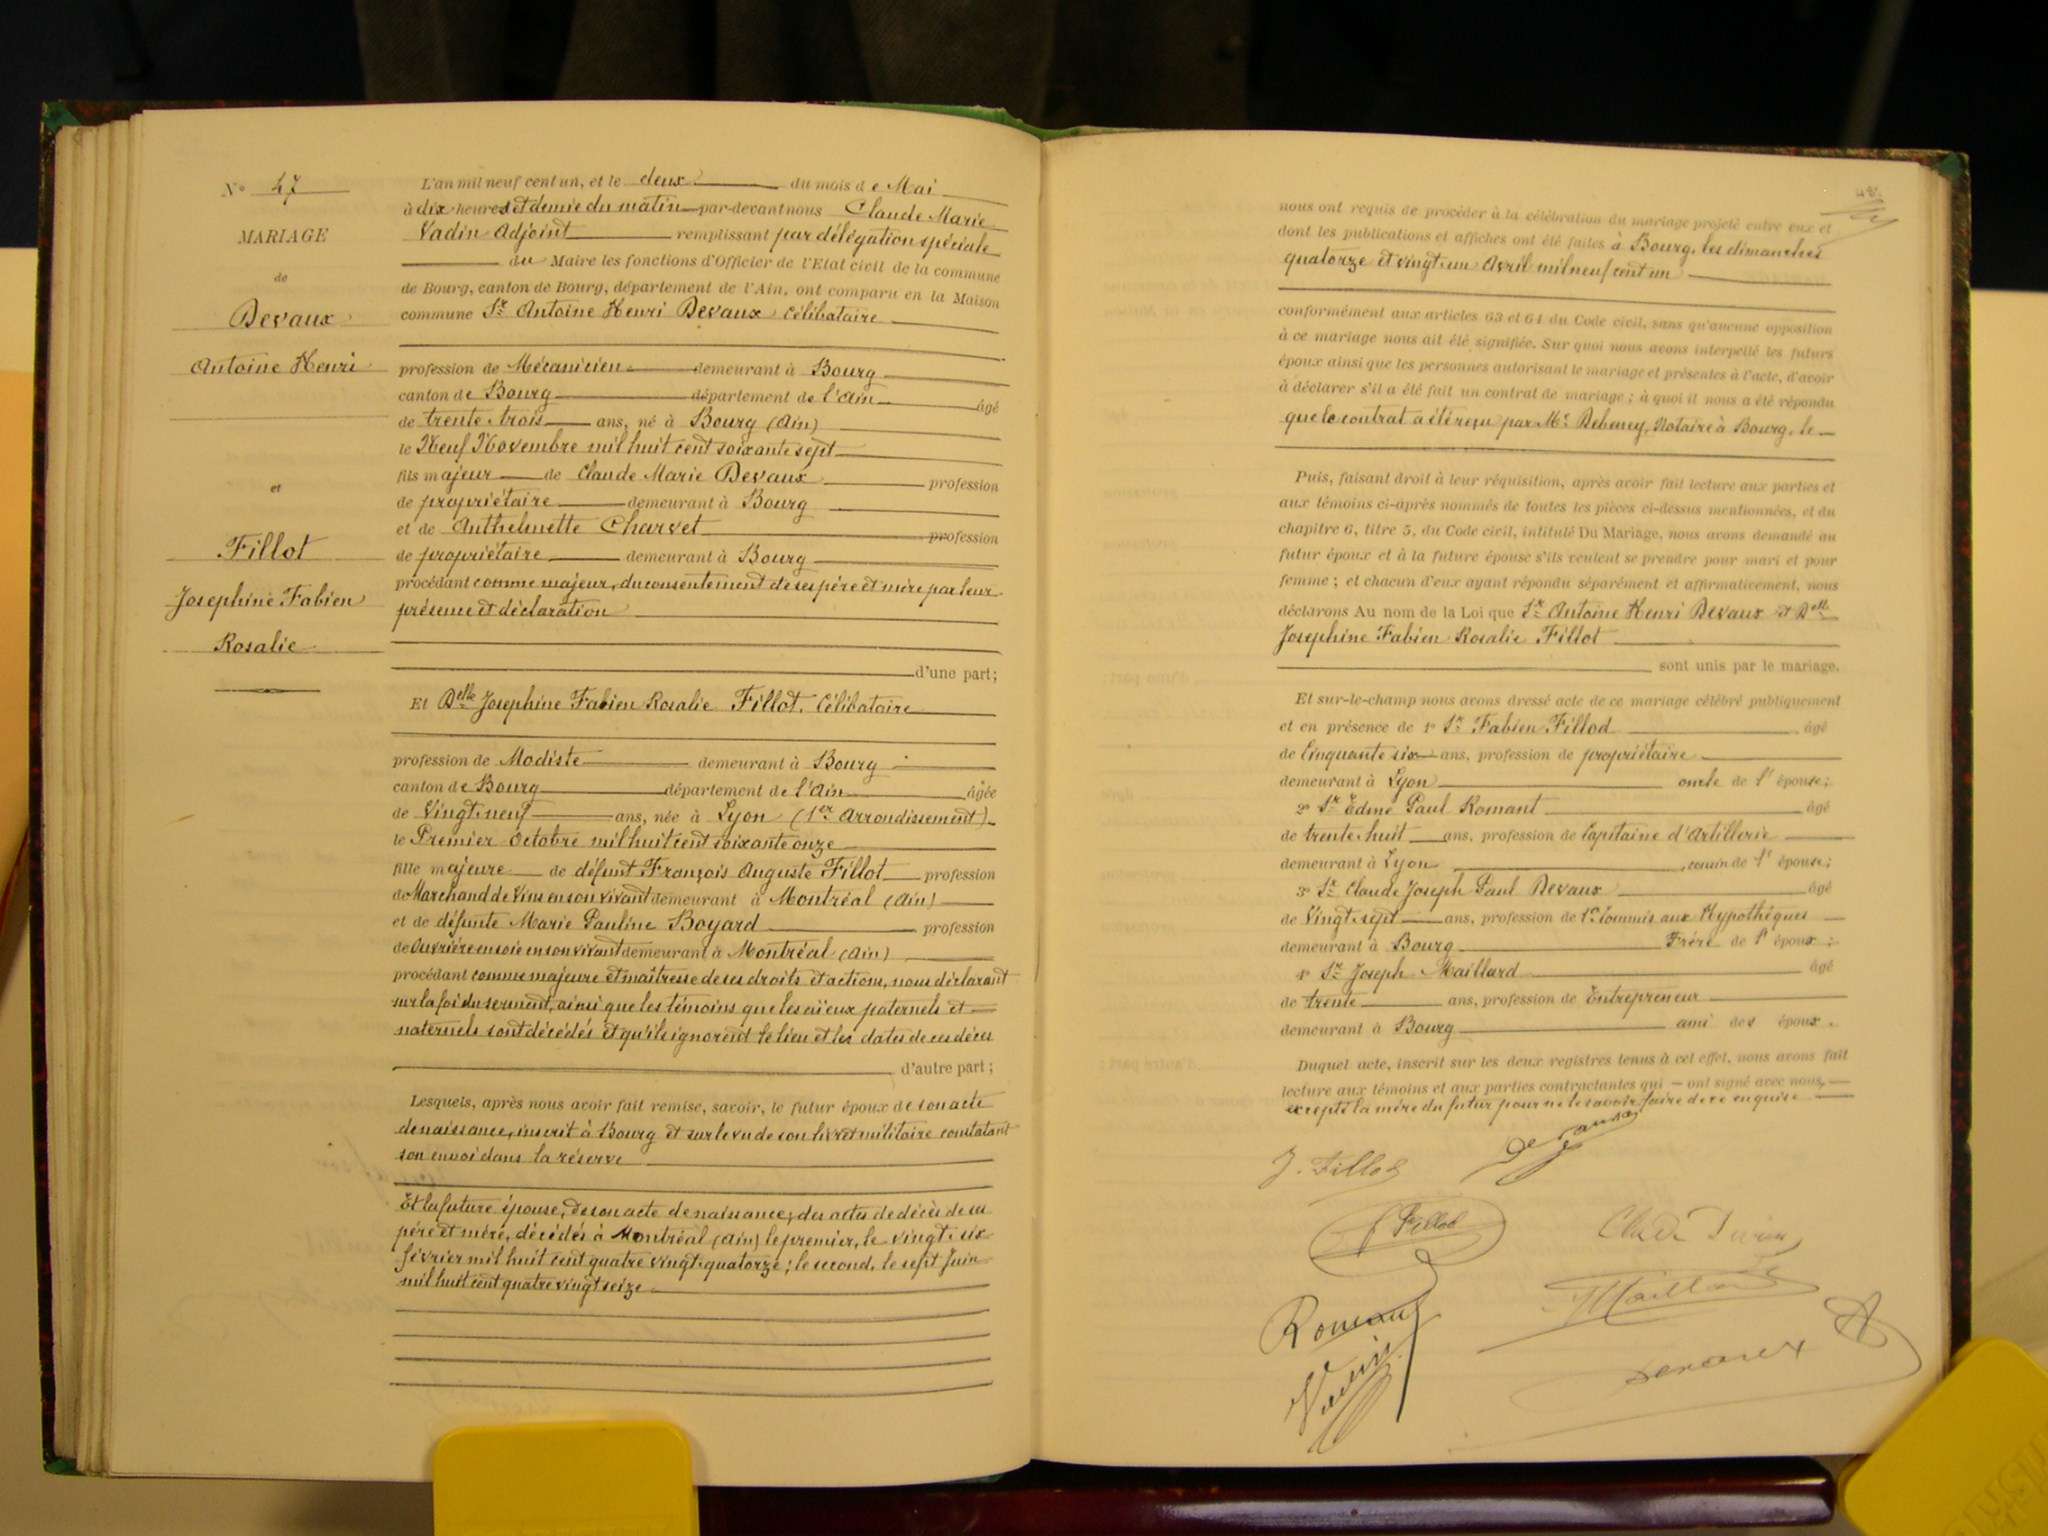 N° 47
MARIAGE
de
Devaux
Antoine Henri
et
Fillot
Josephine Fabien
Rosalie
L'an mil neuf cent un, et le deux du mois de Mai
à dix heures et demie du matin par-devant nous Claude Marie
Vadin Adjoint remplissant par délégation spéciale
du Maire les fonctions d'Officier de l'Etat civil de la commune
de Bourg, canton de Bourg, département de l'Ain, ont comparu en la Maison
commune Sr Antoine Henri Devaux célibataire
profession de Mécanicien demeurant à Bourg
canton de Bourg département de l'Ain âgé
de trente trois ans, né à Bourg (Ain)
le Neuf Novembre mil huit cent soixante sept
fils majeur de Claude Marie Devaux profession
de propriétaire demeurant à Bourg
et de Anthelmette Charvet profession
de propriétaire demeurant à Bourg
procédant comme majeur, du consentement de ses père et mère par leur
présence et déclaration
d'une part;
Et Delle Josephine Fabien Rosalie Fillot. Célibataire
profession de Modiste demeurant à Bourg
canton de Bourg département de l'Ain âgée
de Vingt-neuf ans, née à Lyon (1er Arrondissement)
le Premier Octobre mil huit cent soixante onze
fille majeure de défunt François Auguste Fillot profession
de Marchand de Vins en son vivant demeurant à Montréal (Ain)
et de défunte Marie Pauline Boyard profession
de Ouvrière en soie en son vivant demeurant à Montréal (Ain)
procédant comme majeure et maîtresse de ses droits et actions, nous déclarant
sur la foi du serment, ainsi que les témoins que les aïeux paternels et
maternels sont décédés et qu'ils ignorent le lieu et les dates de ces décès
d'autre part;
Lesquels, après nous avoir fait remise, savoir, le futur époux de son acte
de naissance, inscrit à Bourg et sur le vu de son livret militaire constatant
son envoi dans la réserve
Et la future épouse, de son acte de naissance, des actes de décès de ses
père et mère, décédés à Montréal (Ain) le premier, le vingt-six
février mil huit cent quatre vingt quatorze; le second, le sept Juin
mil huit cent quatre vingt seize
48
nous ont requis de procéder à la célébration du mariage projeté entre eux et
dont les publications et affiches ont été faites à Bourg, les dimanches
quatorze et vingt-un Avril mil neuf cent un
conformément aux articles 63 et 64 du Code civil, sans qu'aucune opposition
à ce mariage nous ait été signifiée. Sur quoi nous avons interpellé les futurs
époux ainsi que les personnes autorisant le mariage et présentes à l'acte, d'avoir
à déclarer s'il a été fait un contrat de mariage; à quoi il nous a été répondu
que le contrat a été reçu par Me Debeney, Notaire à Bourg, le
Puis, faisant droit à leur réquisition, après avoir fait lecture aux parties et
aux témoins ci-après nommés de toutes les pièces ci-dessus mentionnées, et du
chapitre 6, titre 5, du Code civil, intitulé Du Mariage, nous avons demandé au
futur époux et à la future épouse s'ils veulent se prendre pour mari et pour
femme; et chacun d'eux ayant répondu séparément et affirmativement, nous
déclarons Au nom de la Loi que Sr Antoine Henri Devaux et Delle
Josephine Fabien Rosalie Fillot
sont unis par le mariage.
Et sur-le-champ nous avons dressé acte de ce mariage célébré publiquement
et en présence de 1° Sr Fabien Fillod âgé
de Cinquante six ans, profession de propriétaire
demeurant à Lyon oncle de l' épouse;
2° Sr Edme Paul Romant âgé
de trente-huit ans, profession de Capitaine d'Artillerie
demeurant à Lyon, cousin de l' épouse;
3° Sr Claude Joseph Paul Devaux âgé
de Vingt-sept ans, profession de 1er Commis aux Hypothèques
demeurant à Bourg Frère de l' époux;
4° Sr Joseph Maillard âgé
de trente ans, profession de Entrepreneur
demeurant à Bourg ami des époux.
Duquel acte, inscrit sur les deux registres tenus à cet effet, nous avons fait
lecture aux témoins et aux parties contractantes qui ont signé avec nous,
excepté la mère du futur pour ne le savoir faire de ce enquise
J. Fillod
Devaux
Fillod
Romant
Maillard
Vadin
Devaux